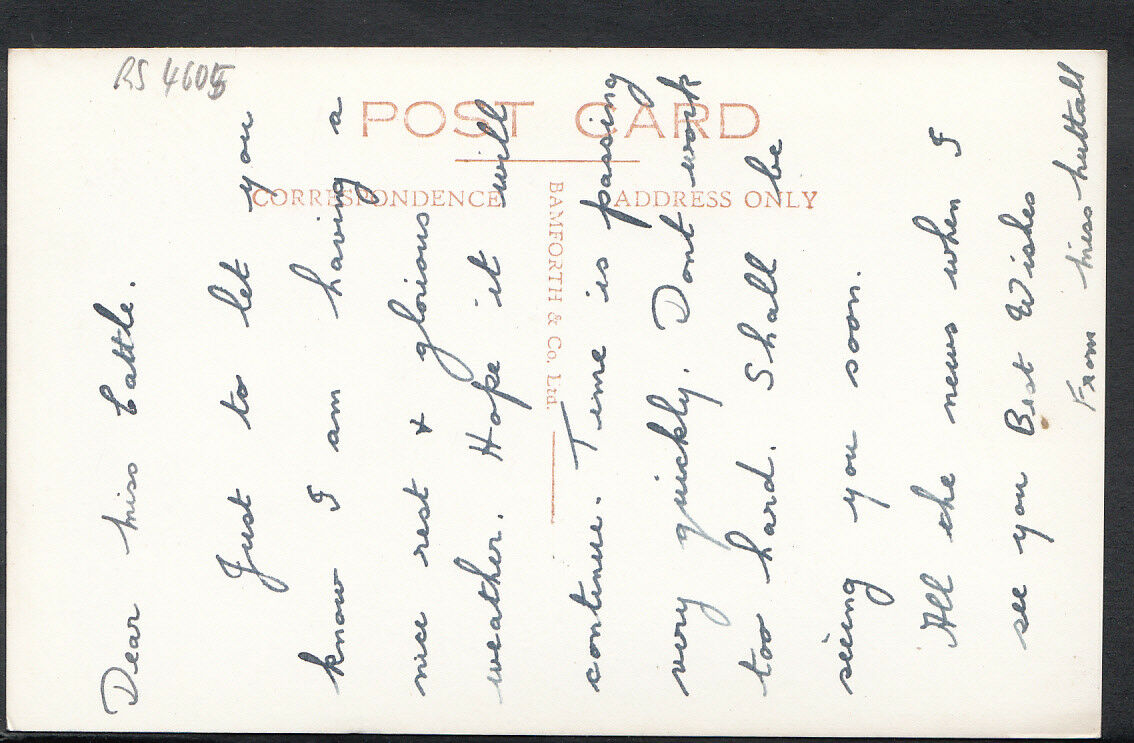 RS 4605
POST CARD
CORRESPONDENCE
ADDRESS ONLY
BAMFORTH & Co. Ltd.
Dear Miss Cattle.
Just to let you
know I am having a
nice rest + glorious
weather. Hope it will
continue. Time is passing
very quickly. Dont work
too hard. Shall be
seeing you soon.
All the news when I
see you Best Wishes
From Miss Nuttall